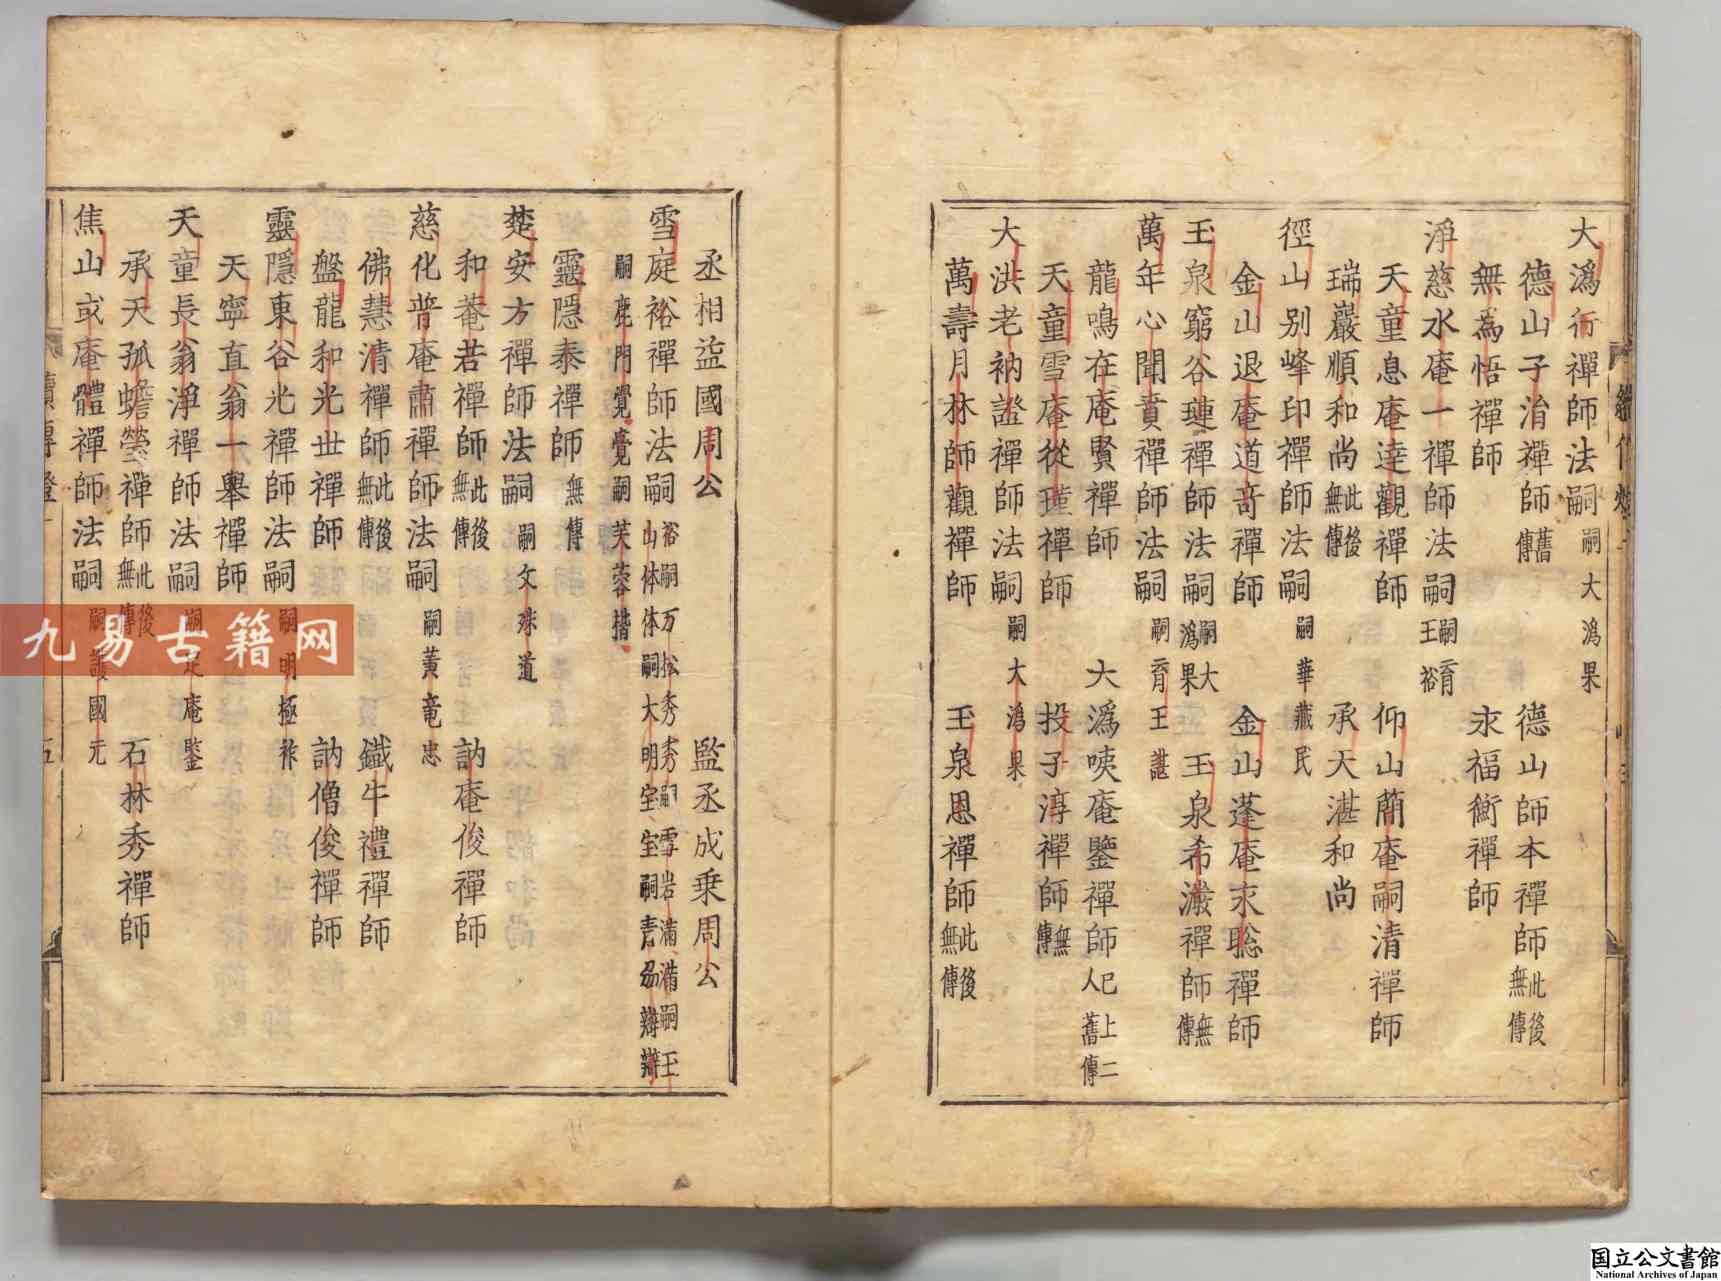 大溈行禪師法嗣 嗣大溈果
德山子涓禪師 舊傳 德山師本禪師 此後無傳
無為悟禪師 求福衡禪師
淨慈水庵一禪師法嗣 嗣育王裕
天童息庵達觀禪師 仰山簡庵嗣清禪師
瑞巖順和尚 此後無傳 承天湛和尚
徑山別峰印禪師法嗣 嗣華藏民
金山退庵道奇禪師 金山蓬庵求聡禪師
玉泉窮谷璉禪師法嗣 嗣大溈果 玉泉希瀓禪師 無傳
萬年心聞賁禪師法嗣 嗣育王諶
龍鳴在庵賢禪師 大溈咦庵鑒禪師 已上二人舊傳
天童雪庵從瑾禪師 投子淳禪師 無傳
大洪老衲證禪師法嗣 嗣大溈果
萬壽月林師觀禪師 玉泉恩禪師 此後無傳
丞相益國周公 監丞成乗周公
雪庭裕禪師法嗣 裕嗣万松秀秀嗣雪岩滿滿嗣王山体体嗣大明宝宝嗣青州辯辯
嗣鹿門覺覺嗣芙蓉楷
靈隱泰禪師 無傳
楚安方禪師法嗣 嗣文殊道
和菴若禪師 此後無傳 訥庵俊禪師
慈化普庵肅禪師法嗣 嗣黃竜忠
佛慧清禪師 此後無傳 鐵牛禮禪師
盤龍和光世禪師 訥僧俊禪師
靈隱東谷光禪師法嗣 嗣明極祚
天寧直翁一舉禪師
天童長翁淨禪師法嗣 嗣足庵鑒
承天孤蟾瑩禪師 此後無傳 石林秀禪師
焦山或庵體禪師法嗣 嗣護國元
續傳燈 五
九易古籍网
国立公文書館
National Archives of Japan